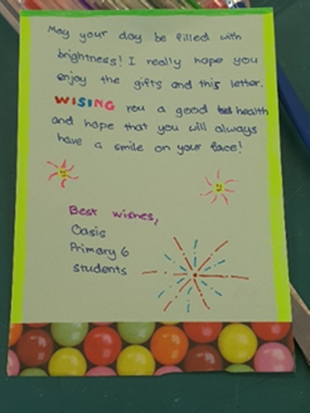 May your day be filled with
brightness! I really hope you
enjoy the gifts and this letter.
WISING you a good health
and hope that you will always
have a smile on your face!
Best wishes,
Oasis
Primary 6
students